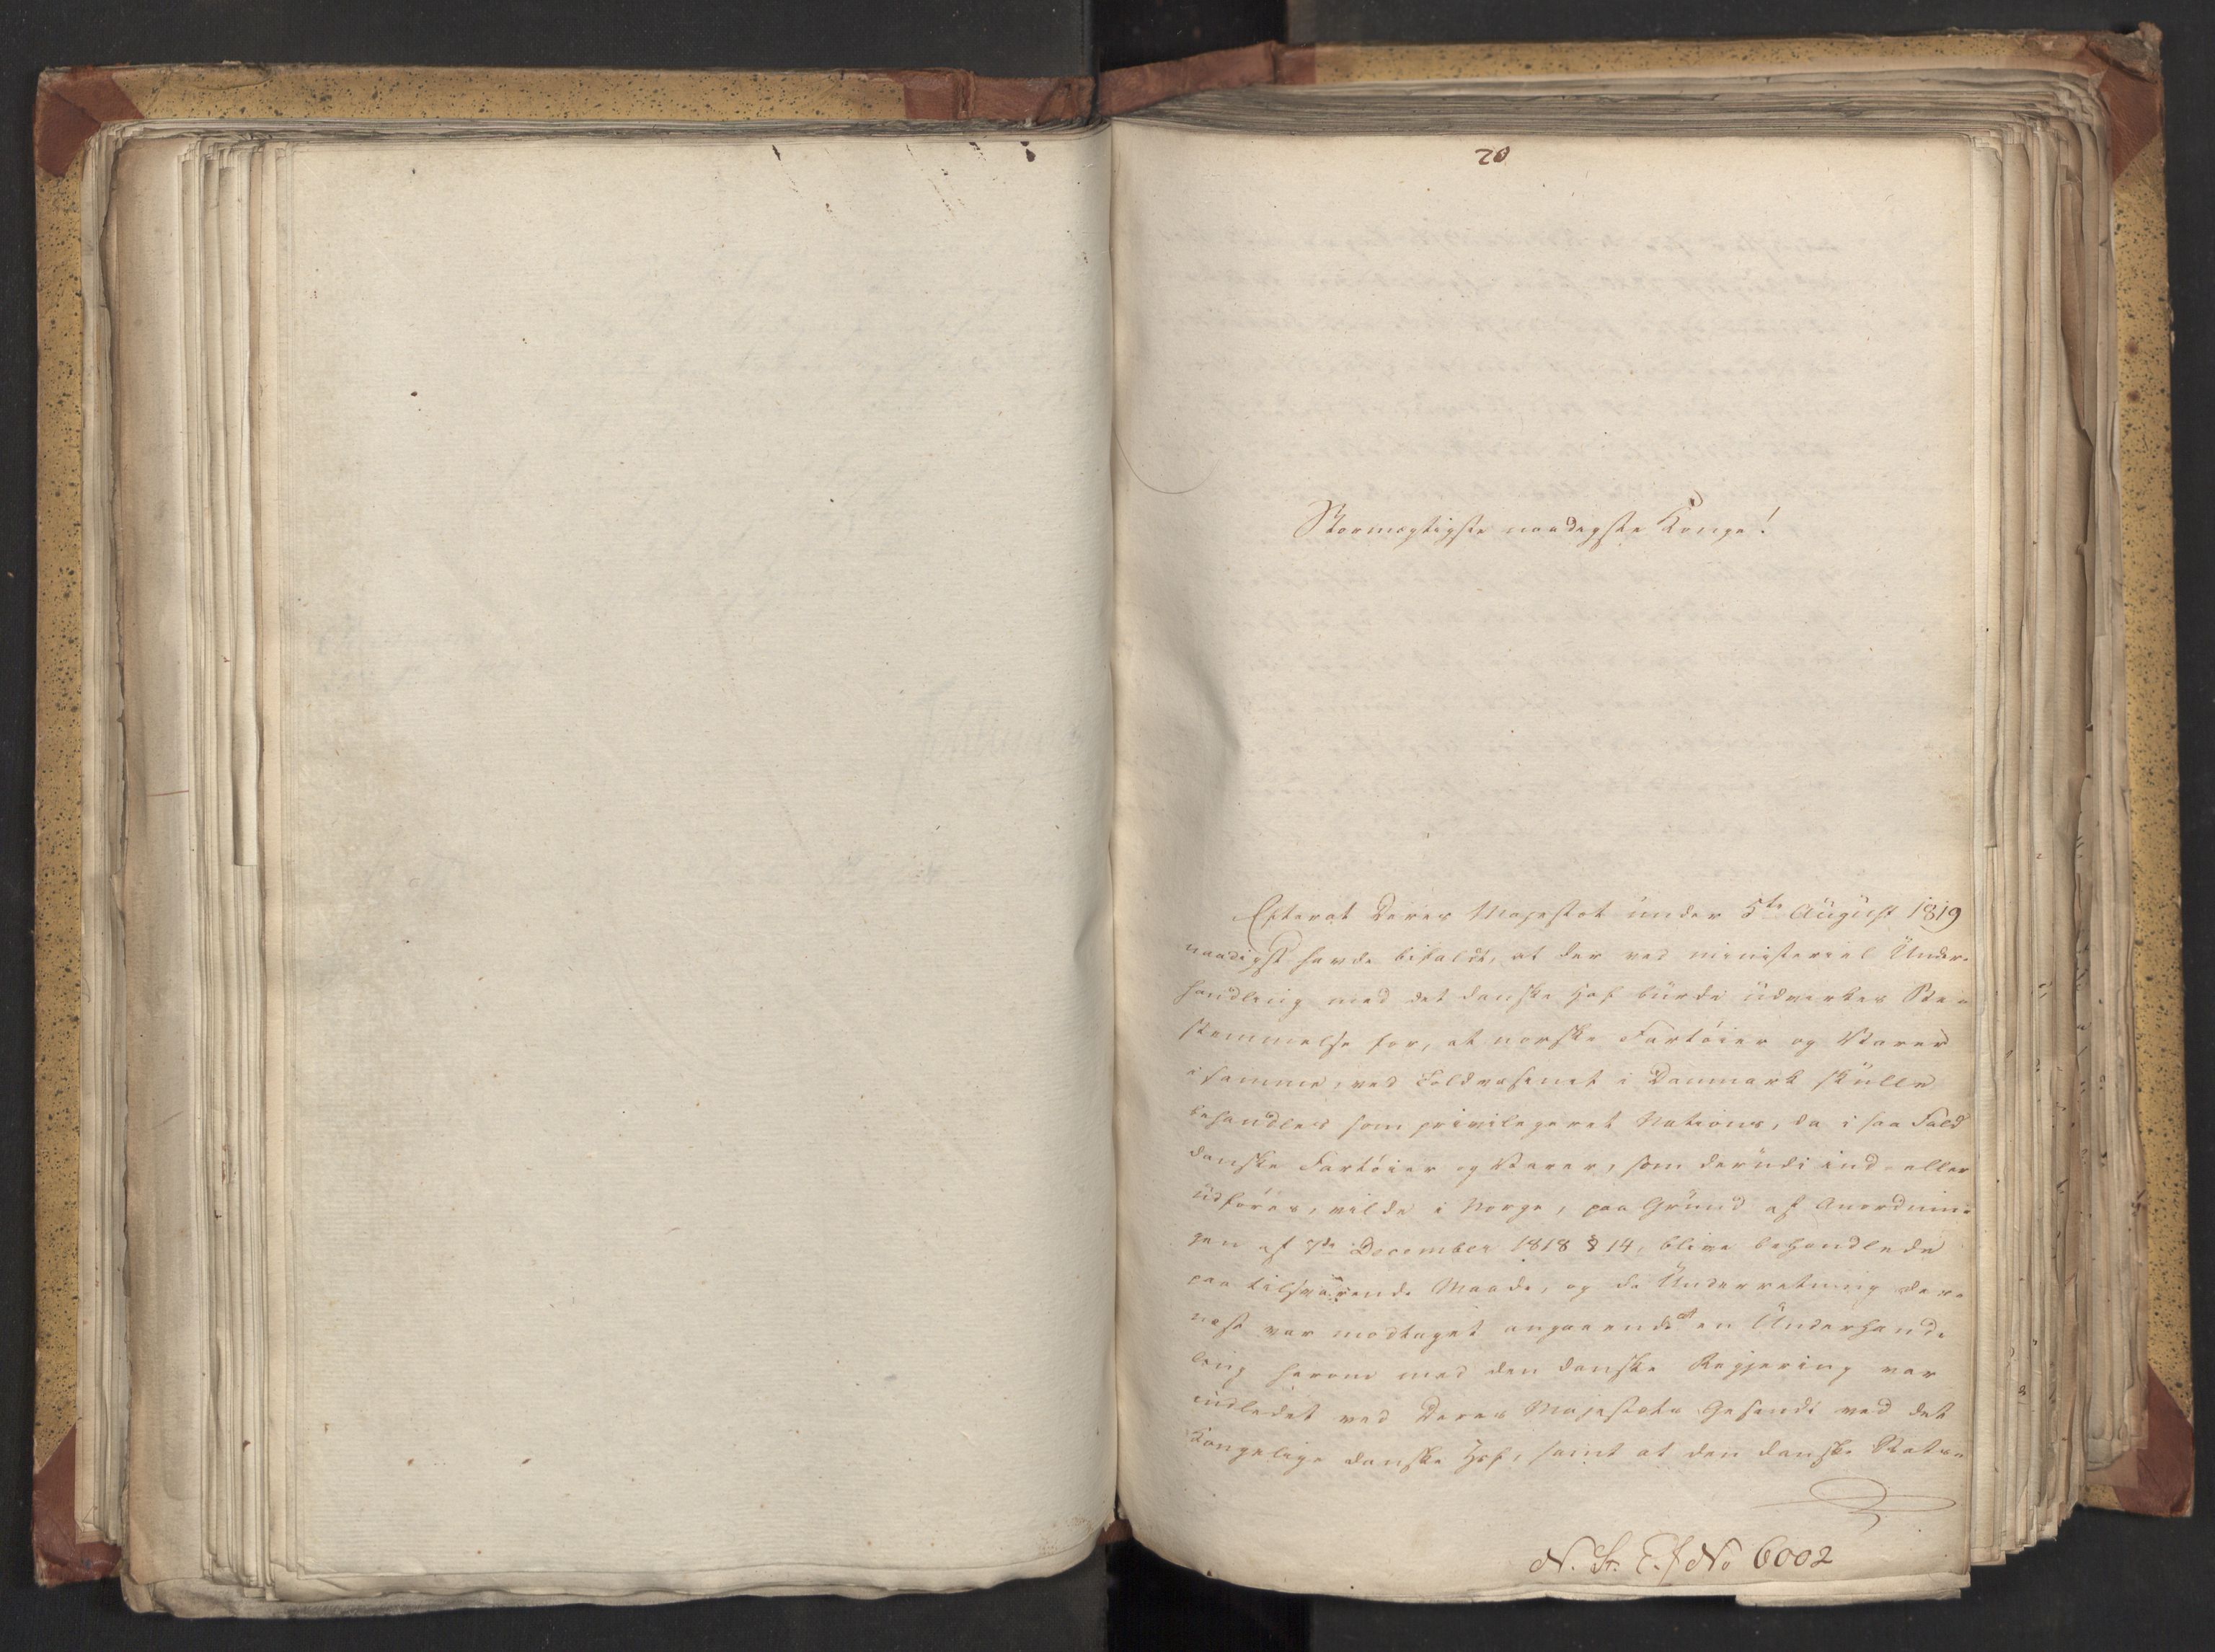 20
Stormægtigste naadigste Konge!
Efterat Deres Majestæt under 5te August 1819
naadigst havde bifaldt, at der ved ministeriel Under-
handling med det danske Hof burde udvirkes Be-
stemmelse for, at norske Fartöier og Varer
i samme, ved Toldvæsenet i Danmark skulle
behandles som privilegeret Nations, da i saa Fald
danske Fartöier og Varer, som derudi ind- eller
udföres, vilde i Norge, paa Grund af Anordnin-
gen af 7de December 1818 § 14, blive behandlede
paa tilsvarende Maade, og da Underretning der-
næst var modtaget angaaende at en Underhand-
ling herom med den danske Regjering var
indledet ved Deres Majestæts Gesandt ved det
Kongelige danske Hof, samt at den danske Stats-
N. St. E. f No 6002